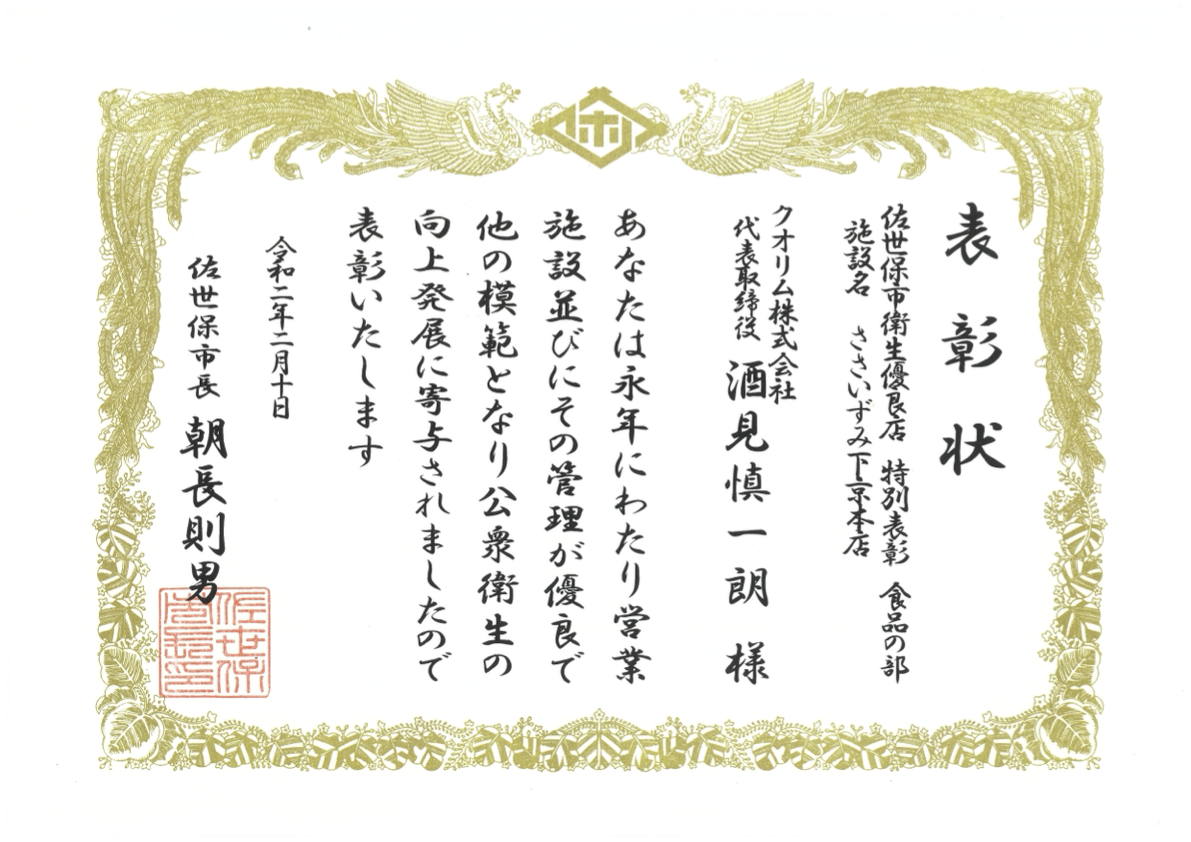 表彰状
佐世保市衛生優良店 特別表彰 食品の部
施設名 ささいずみ下京本店
クオリム株式会社
代表取締役 酒見慎一朗 様
あなたは永年にわたり営業
施設並びにその管理が優良で
他の模範となり公衆衛生の
向上発展に寄与されましたので
表彰いたします
令和二年二月十日
佐世保市長 朝長則男
佐世保
市長之印